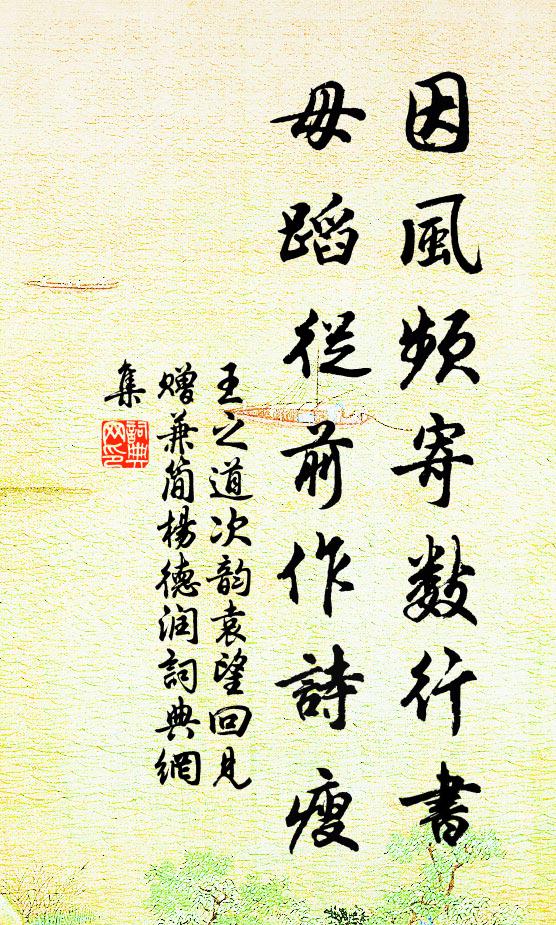 因風頻寄数行書
毋蹈從前作詩瘦
王之道次韵袁望回見
赠兼简楊德润詞典網
集
詞典
网印